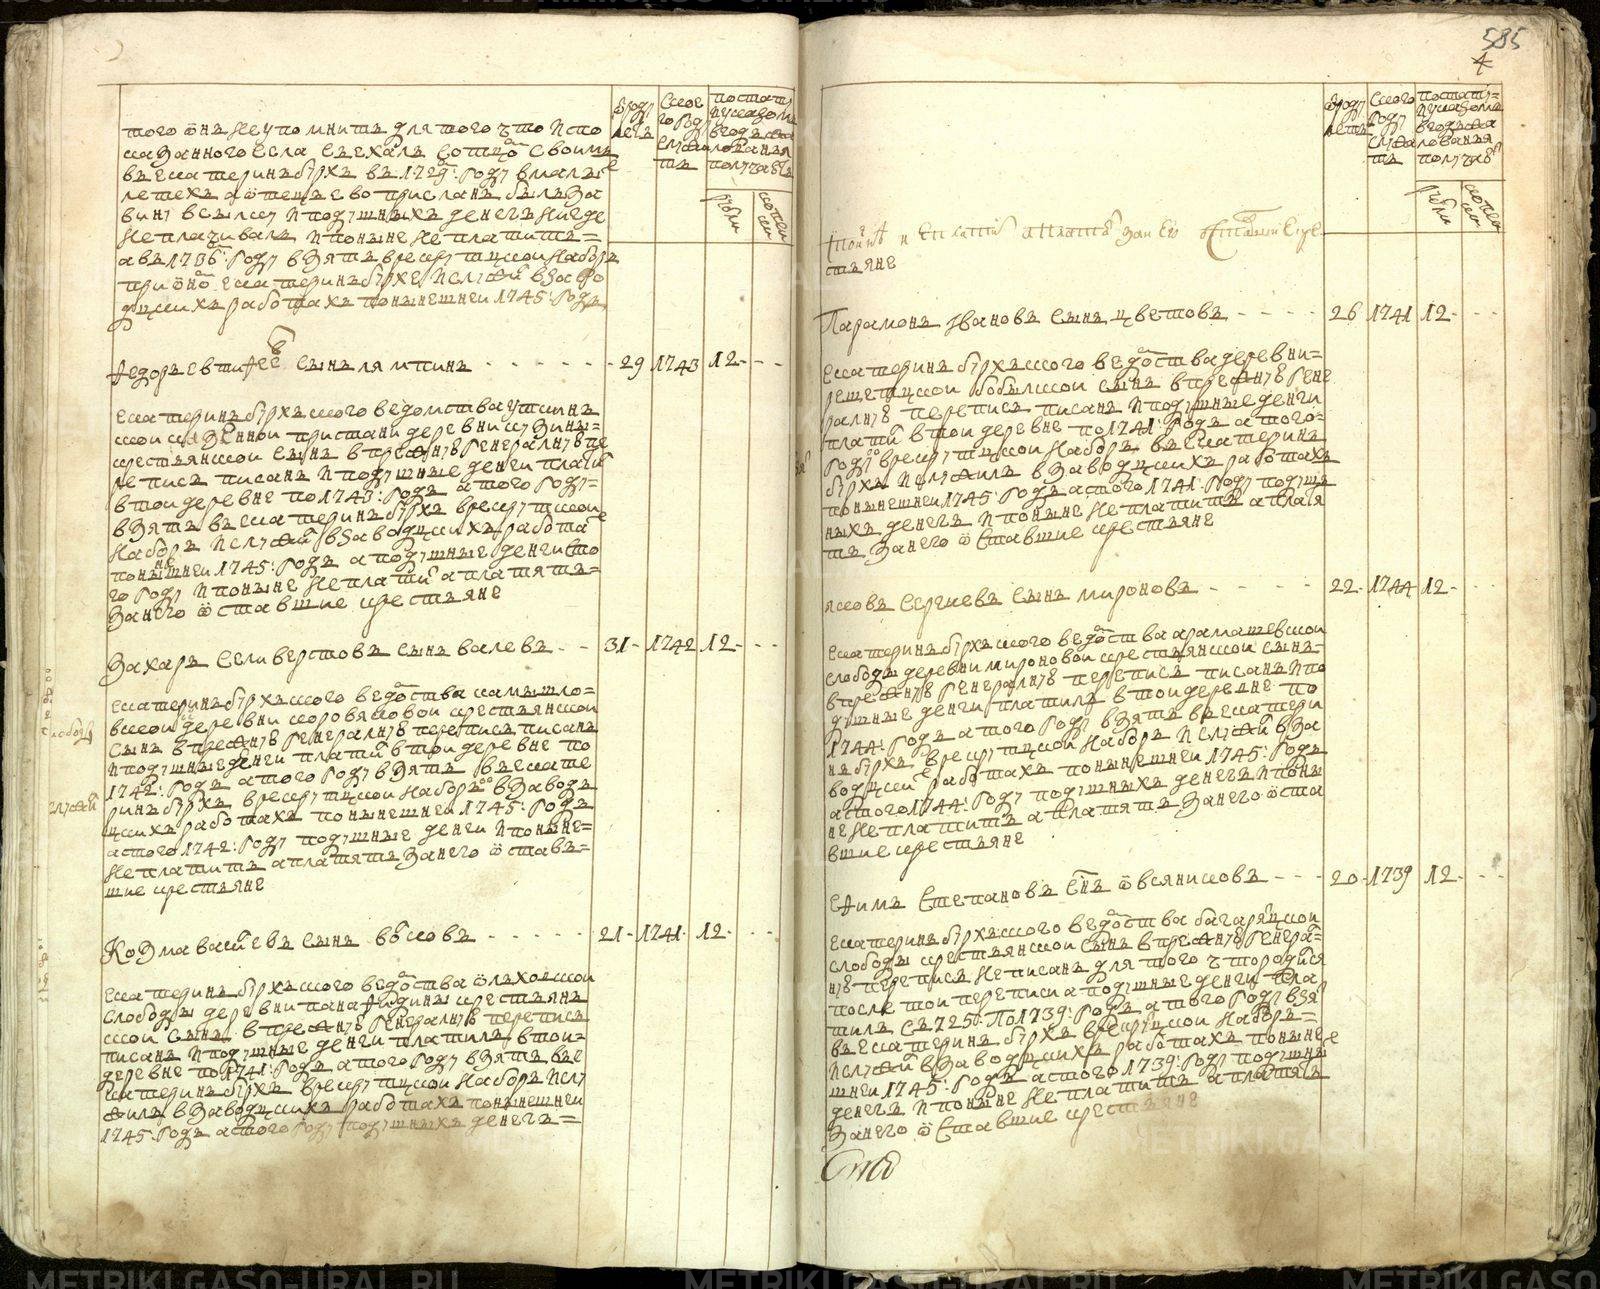 585
4
того онъ не упомнитъ для того что испо
казанного села съехалъ сотцо своимъ
въ екатеринъбурхъ въ 1729: году вмалы
летехъ а отецъ ево присланъ былъ за
вину всылку и подушныхъ денегъ нигде
не плачивалъ и поныне не платитъ =
а въ 1736: году взятъ врекрутцкои наборъ
при оно екатеринъбурхе и служи взаво
дцкихъ работахъ поныне шнеи 1745: годъ
Федоръ евтифее сынъ лямпинъ - 29 1743 12 -
екатеринъбурхъского ведомства уткинъ
скои казеннои пристани деревни кузины =
крестьянскои сынъ впрежную генералную пе
репись писанъ и подушные денги плати
втои деревне по 1743: годъ а того году =
взятъ въ екатеринъбурхъ врекрутцкои
наборъ и служи взаводцкихъ работа
понынешнеи 1745: годъ а подушные денги сто
го году и поныне не плати а платятъ =
за него оставшие крестьяне
Захаръ Селиверстовъ сынъ валевъ - - 31 - 1742 12 -
екатеринъбурхъского ведоства камышло =
вскои деревни коровяковои крестьянскои
слободы
сынъ впрежную генералную перепись писанъ
и подушные денги плати втои деревне по
1742: годъ а того году взятъ въ екате
ринъбурхъ врекрутцкои наборъ взаводъ
служи
цкихъ работахъ понынешнеи 1745: годъ
а стого 1742: году подушные денги и поныне =
не платитъ а платятъ за него остав =
шие крестьяне
Козма васиевъ сынъ быковъ - 21 - 1741 12 -
екатеринъбурхъского ведоства ольховской
слободы деревни панафидины крестьянь
скои сынъ впрежную генералную перепись
писанъ и подушные денги платилъ втои =
деревне по 1741: годъ а того году взятъ въ е
катеринъбурхъ врекрутцкои наборъ и слу
жилъ взаводцкихъ работахъ понынешнеи
1745: годъ а стого году подушныхъ денегъ =
стьяне
Парамонъ Ивановъ сынъ цветовъ - - - - 26 1741 12 -
екатеринъбурхъского ведоства деревни =
решецкои бобылскои сынъ впрежную гене
ралную перепись писанъ и подушные денги
плати втои деревне по 1741: годъ а того =
году врекрутцкои наборъ въ екатеринъ
бурхъ и служилъ взаводцкихъ работахъ
понынешнеи 1745: годъ а стого 1741: году подуш
ныхъ денегъ и поныне не платитъ а платя
тъ за него оставшие крестьяне
яковъ Сергиевъ сынъ мироновъ - 22 - 1744 12 -
екатеринъбурхъского ведоства арамашевскои
слободы деревни мироновои крестьянскои сынъ =
впрежную генералную перепись писанъ и по
душные денги платилъ втои деревне по
1744: годъ а того году взятъ въ екатери
нъбурхъ врекрутцкои наборъ и служи вза
водцкеи работахъ понынешнеи 1745: годъ
а стого 1744: году подушныхъ денегъ и поны
не не платитъ а платятъ за него оста
вшие крестьяне
ефимъ Степановъ снъ овсяниковъ - - - 20 - 1739 12 -
екатеринъбурхъского ведоства багаряцкои
слободы крестьянскои сынъ впрежную генера =
ную перепись не писанъ для того что родился
после тои переписи а подушные денги пла
тилъ съ 725: по 1739: годъ а того году взя
въ екатеринъбурхъ врекруцкои наборъ =
и служи взаводцкихъ работахъ поныне
шнеи 1745: годъ а стого 1739: году подушны
денегъ и поныне не платитъ а платятъ
за него оставшие крестьяне